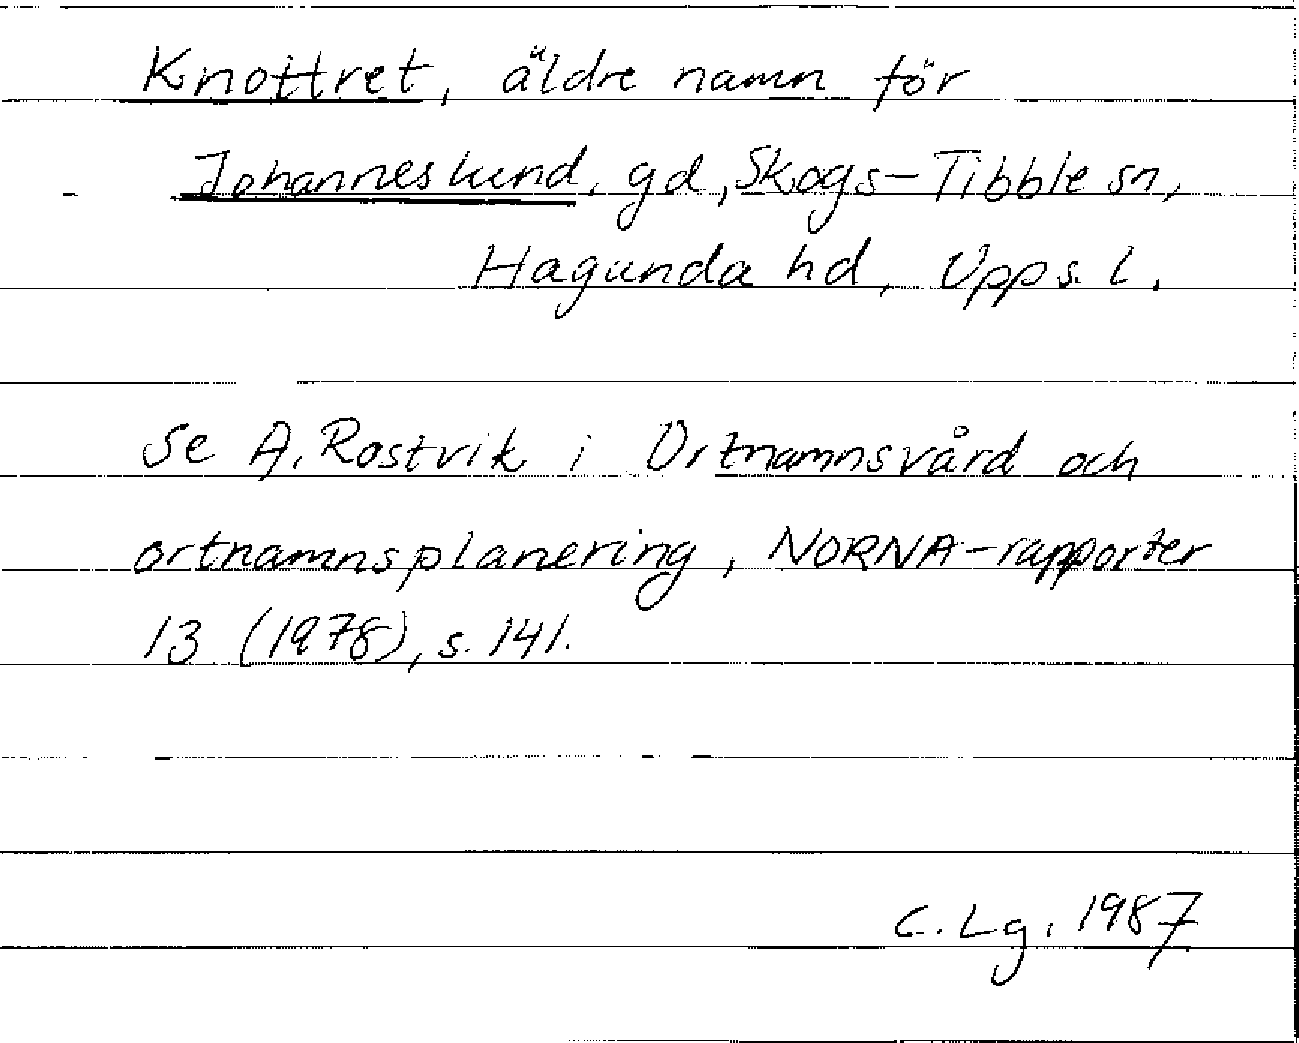 Knottret, äldre namn för
Johanneslund, gd, Skogs-Tibble sn,
Hagunda hd, Upps. l.
Se A. Rostvik i Ortnamnsvård och
ortnamnsplanering, NORNA-rapporter
13 (1978), s. 141.
C. Lg. 1987